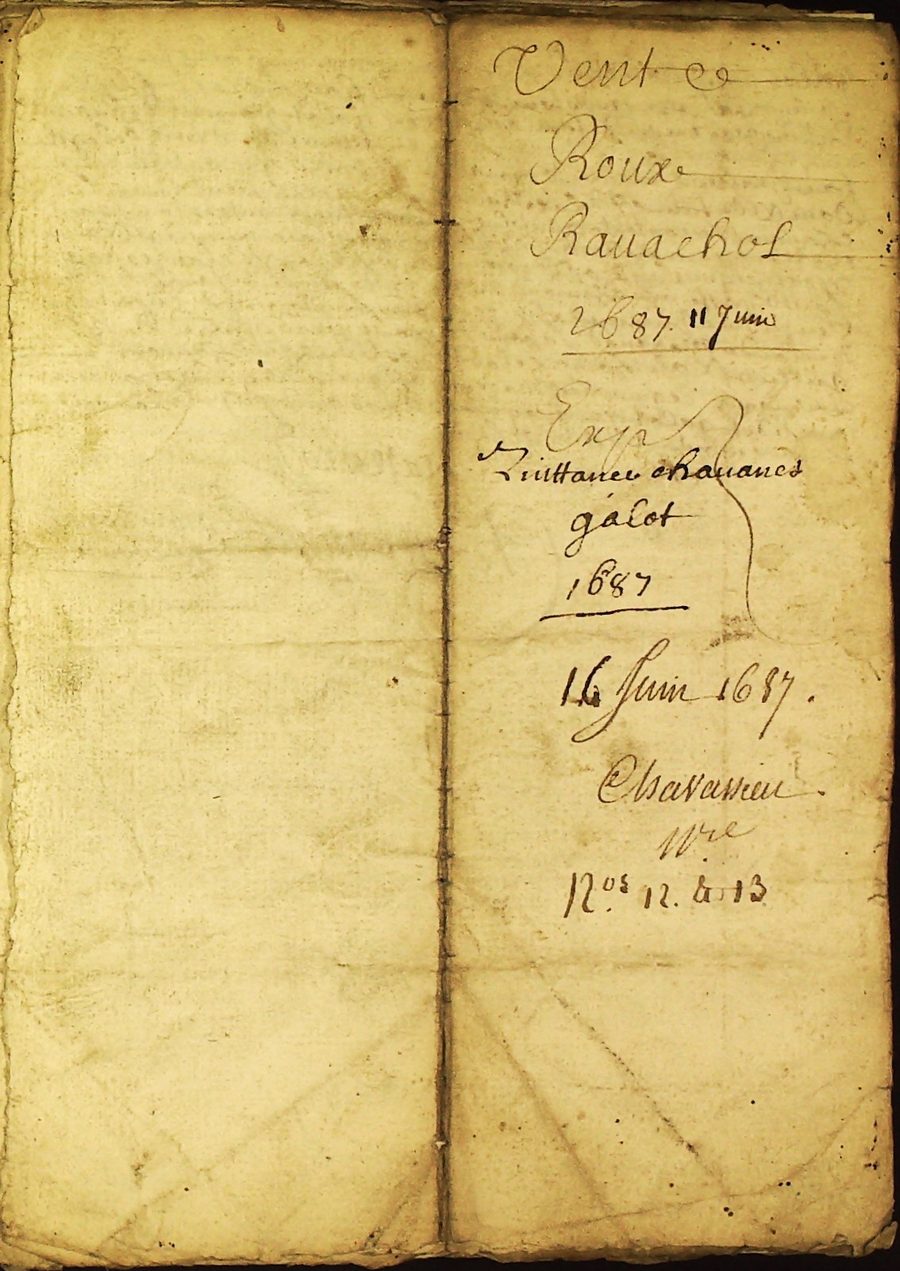 Vente
Roux
Rauachol
1687. 11 Juin
Exp
Quittance chauanes
galot
1687
14 Juin 1687.
Chavassieu.
Nre
Nos. 12. & 13